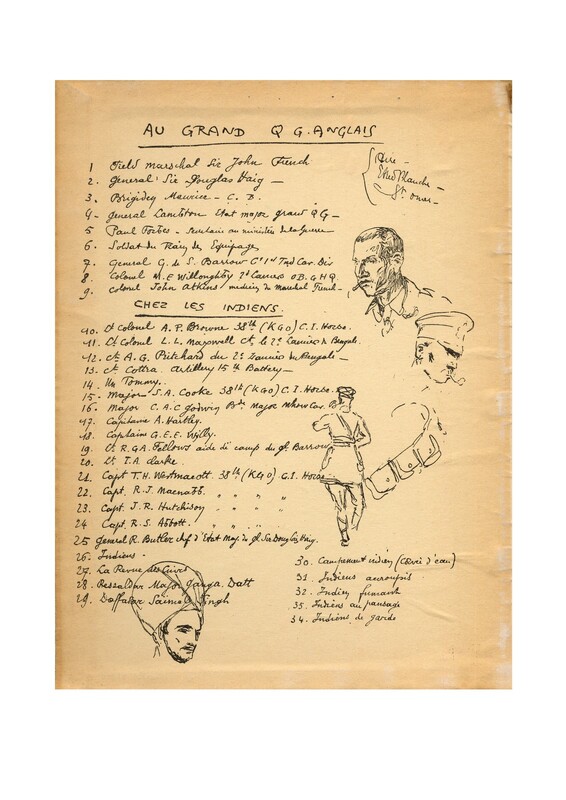 AU GRAND Q G. ANGLAIS
Aire -
St Omer -
1 Field Marschal Sir John French
2. général Sir Douglas Haig -
3. Brigidey Maurice - C. B.
4. général Lambton Etat major grand QG -
5 Paul Forbes - Secrétaire au ministère de la guerre
6. Soldat du Train des Equipages
7 général G. de S. Barrow Ct 1st Ind Cav. Div
8 Colonel M. E. Willoughby 2d Lancers O.B. GHQ.
9. colonel John Atkins medecin du Marechal French -
CHEZ LES INDIENS.
10. Lt Colonel A. P. Browne 38th (KGO) C. I. Horse.
11. Lt Colonel L. L. Maxwell Ct le 2e Lanciers du Bengale.
12. Ct A. G. Pritchard du 2e Lanciers du Bengale -
13. Ct Cottra. Artillery 15th Battery -
14. Un Tommy.
15. Major S. A. Cooke 38th (KGO) C. I. Horse.
16. Major C. A. C. Godwin Bde Major Mhow Cav. B
17. Capitaine A. Hartley.
18. Captain G. E. E. Willy.
19. Ct R. G. A. Fellows aide de camp du gl Barrow
20. Lt T. A. Clarke.
21. Capt T. H. Westmacott 38th (KGO) C. I. Horse
22. Capt. R. J. Macnabb. " " " "
23. Capt. J. R. Hutchison " " " "
24 Capt. R. S. Abbott. " " " "
25 General R. Butler chf d'Etat Maj. du gl Sir Douglas Haig.
26. Indiens.
27. La Revue des Gurs
28. Ressaldar Major Ganga Datt
29. Daffadar Singh
30. Campement indien (Corvée d'eau)
31. Indiens accroupis
32. Indien fumant
35. Indiens au pansage
34. Indiens de garde